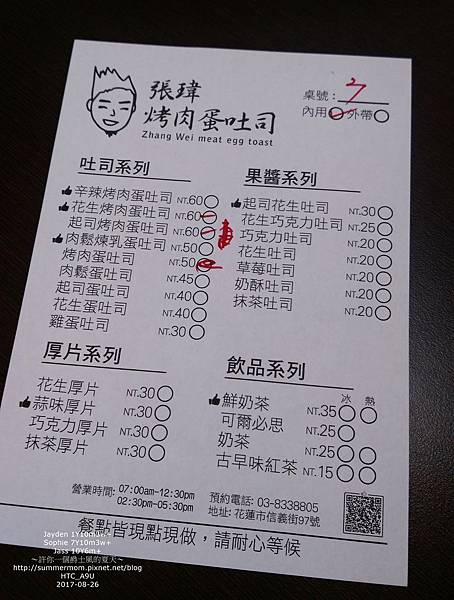 張瑋
烤肉蛋吐司
Zhang Wei meat egg toast
桌號: 7
內用 外帶
吐司系列
辛辣烤肉蛋吐司 NT.60
花生烤肉蛋吐司 NT.60
起司烤肉蛋吐司 NT.60
肉鬆煉乳蛋吐司 NT.50
烤肉蛋吐司 NT.50
肉鬆蛋吐司 NT.45
起司蛋吐司 NT.40
花生蛋吐司 NT.40
雞蛋吐司 NT.30
果醬系列
起司花生吐司 NT.30
花生巧克力吐司 NT.25
巧克力吐司 NT.20
花生吐司 NT.20
草莓吐司 NT.20
奶酥吐司 NT.20
抹茶吐司 NT.20
厚片系列
花生厚片 NT.30
蒜味厚片 NT.30
巧克力厚片 NT.30
抹茶厚片 NT.30
飲品系列
冰 熱
鮮奶茶 NT.35
可爾必思 NT.25
奶茶 NT.25
古早味紅茶 NT.15
營業時間: 07:00am-12:30pm
02:30pm-05:30pm
預約電話: 03-8338805
地址: 花蓮市信義街97號
餐點皆現點現做，請耐心等候
Jayden 1Y10m0w+
Sophie 7Y10m3w+
Jass 10Y6m+
～許你一個爵士風的夏天～
http://summermom.pixnet.net/blog
HTC_A9U
2017-08-26